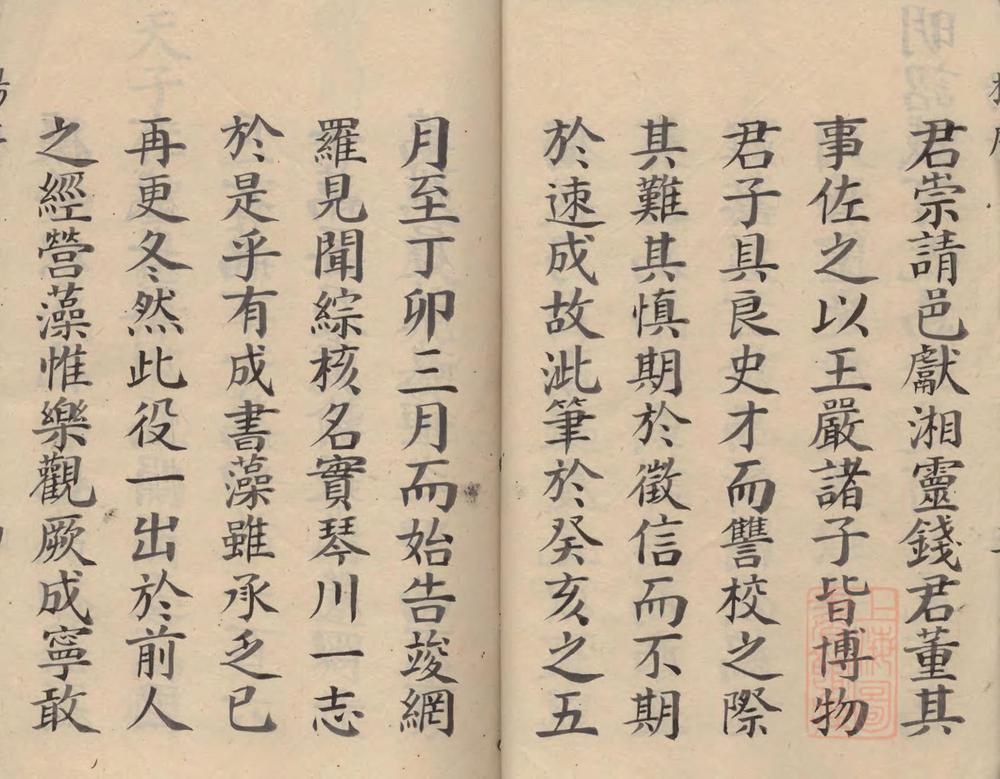 君崇請邑獻湘靈錢君董其
事佐之以王嚴諸子皆博物
君子具良史才而讐校之際
其難其慎期於徵信而不期
於速成故泚筆於癸亥之五
月至丁卯三月而始告竣網
羅見聞綜核名實琴川一志
於是乎有成書藻雖承乏已
再更冬然此役一出於前人
之經營藻惟樂觀厥成寧敢